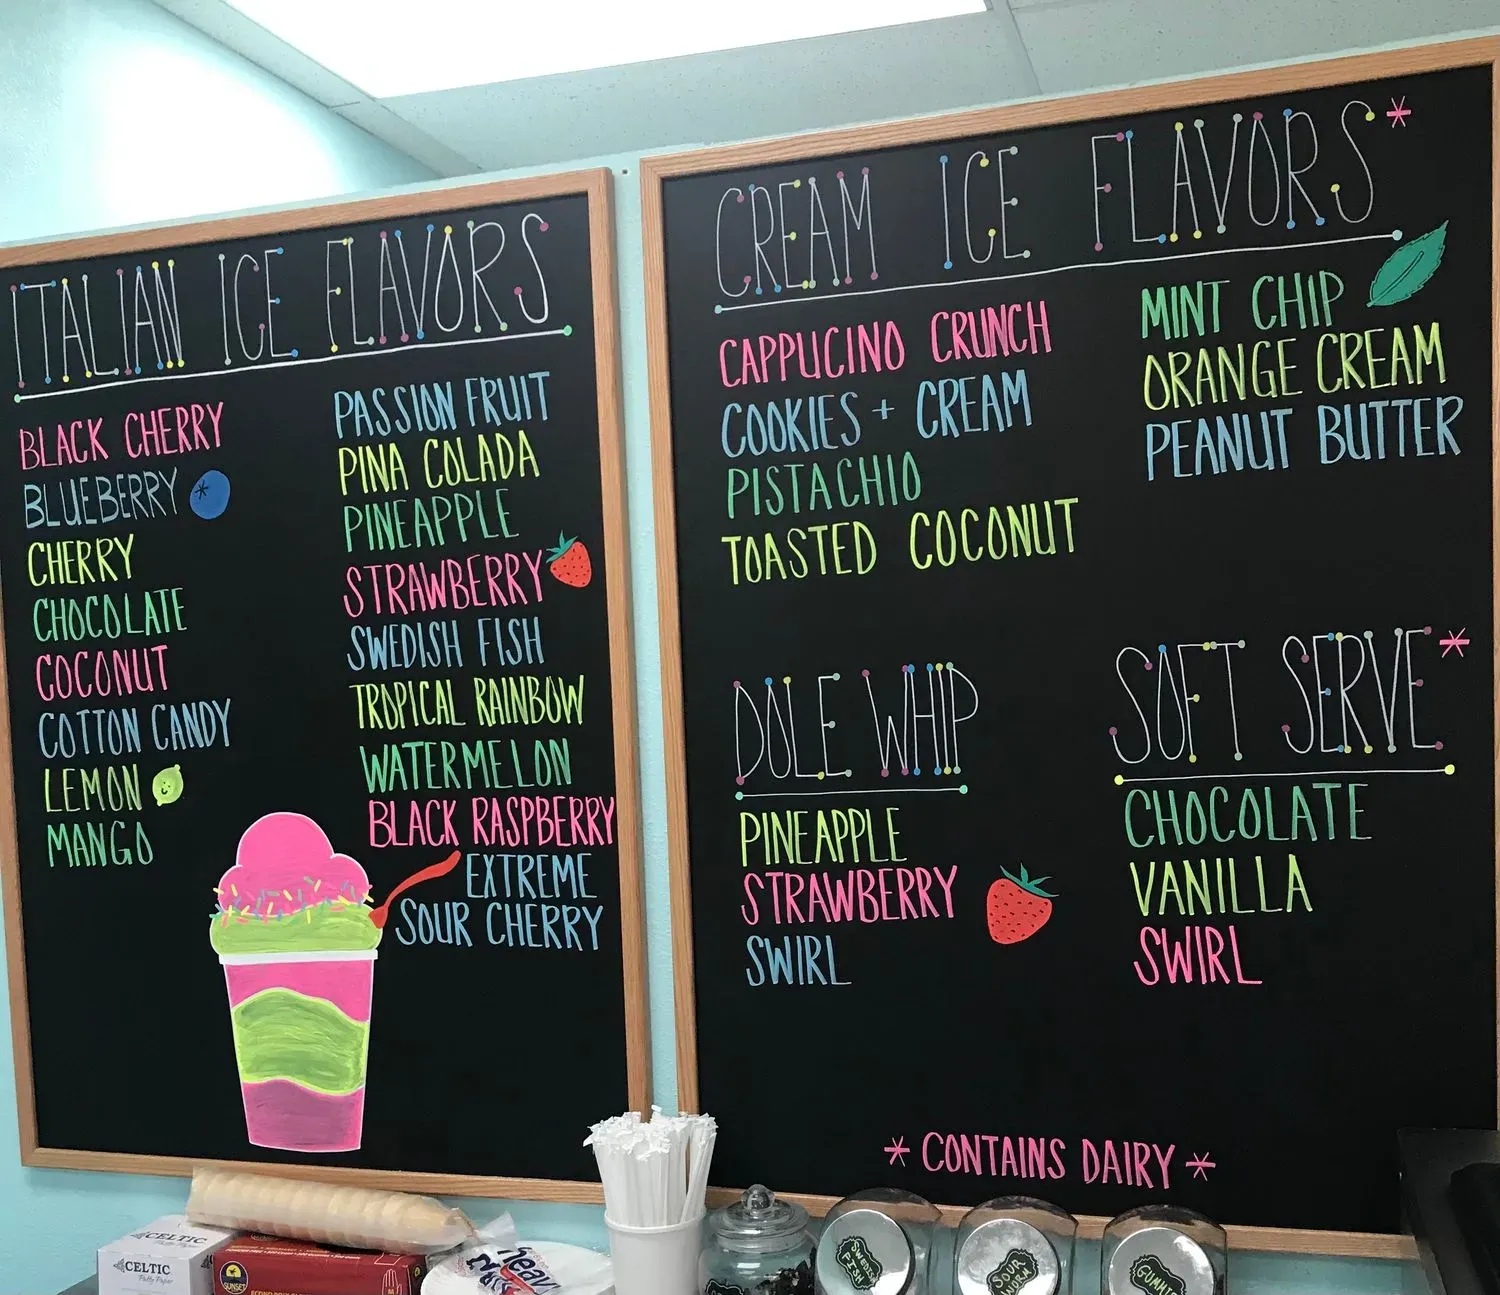 ITALIAN ICE FLAVORS
BLACK CHERRY
BLUEBERRY
CHERRY
CHOCOLATE
COCONUT
COTTON CANDY
LEMON
MANGO
PASSION FRUIT
PINA COLADA
PINEAPPLE
STRAWBERRY
SWEDISH FISH
TROPICAL RAINBOW
WATERMELON
BLACK RASPBERRY
EXTREME
SOUR CHERRY
CREAM ICE FLAVORS*
CAPPUCINO CRUNCH
COOKIES + CREAM
PISTACHIO
TOASTED COCONUT
MINT CHIP
ORANGE CREAM
PEANUT BUTTER
DOLE WHIP
PINEAPPLE
STRAWBERRY
SWIRL
SOFT SERVE*
CHOCOLATE
VANILLA
SWIRL
* CONTAINS DAIRY *
CELTIC
CELTIC
Patty Paper
SUNSET
SWEDISH
FISH
SOUR
WORM